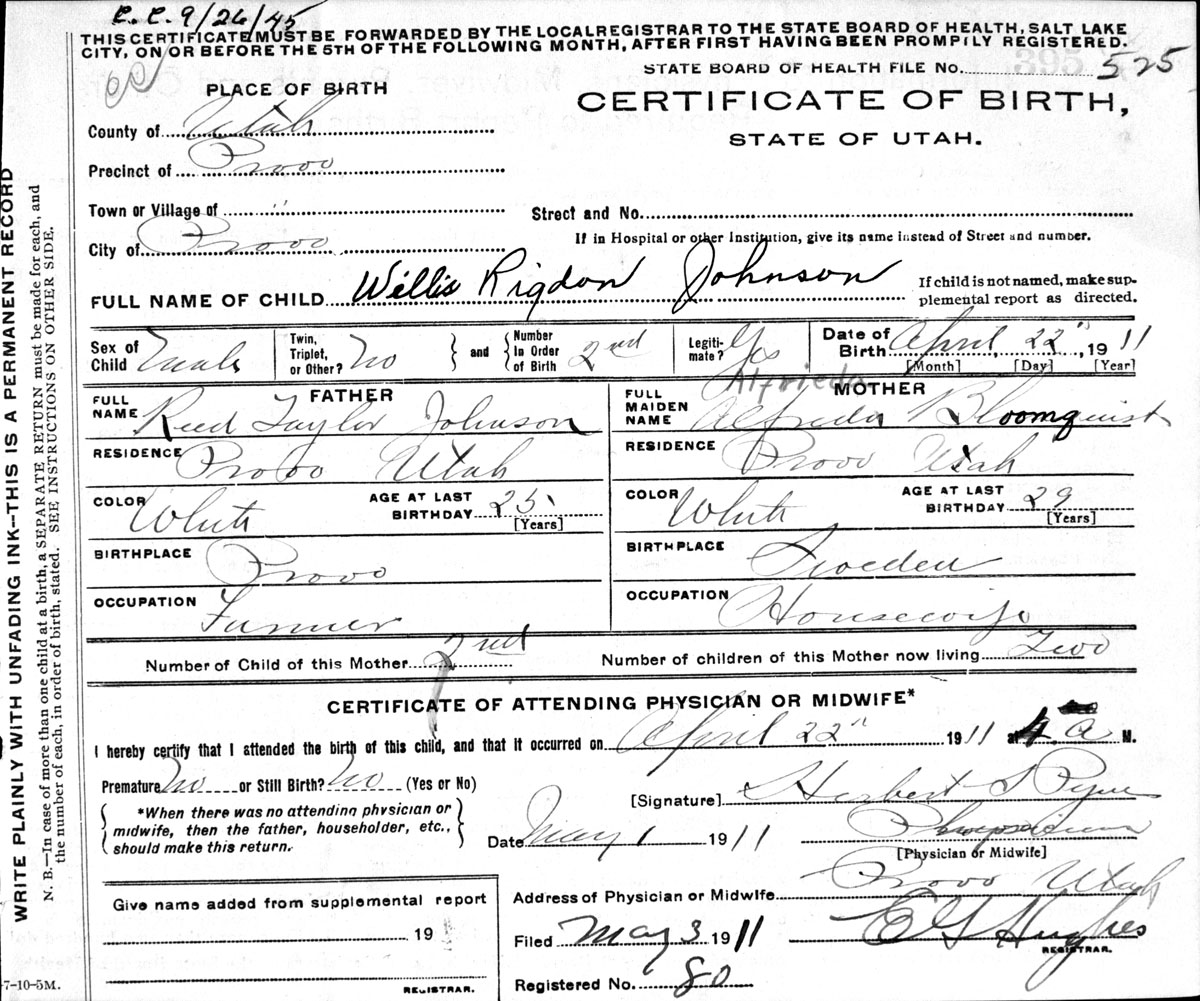 C.C. 9/26/45
THIS CERTIFICATE MUST BE FORWARDED BY THE LOCAL REGISTRAR TO THE STATE BOARD OF HEALTH, SALT LAKE
CITY, ON OR BEFORE THE 5TH OF THE FOLLOWING MONTH, AFTER FIRST HAVING BEEN PROMPTLY REGISTERED.
STATE BOARD OF HEALTH FILE No. 525
PLACE OF BIRTH
CERTIFICATE OF BIRTH,
STATE OF UTAH.
County of Utah
Precinct of Provo
Town or Village of "
Street and No.
City of Provo
If in Hospital or other Institution, give its name instead of Street and number.
FULL NAME OF CHILD Willis Rigdon Johnson
If child is not named, make sup-
plemental report as directed.
Sex of Child Male
Twin, Triplet, or Other? No
and Number In Order of Birth 2nd
Legiti-mate? Yes
Date of Birth April 22", 1911
[Month] [Day] [Year]
FATHER
FULL NAME Reed Taylor Johnson
RESIDENCE Provo Utah
COLOR White
AGE AT LAST BIRTHDAY 25
[Years]
BIRTHPLACE Provo
OCCUPATION Farmer
Alfrieda
MOTHER
FULL MAIDEN NAME Alfreda Bloomquist
RESIDENCE Provo Utah
COLOR White
AGE AT LAST BIRTHDAY 29
[Years]
BIRTHPLACE Sweden
OCCUPATION Housewife
Number of Child of this Mother 2nd
Number of children of this Mother now living Two
CERTIFICATE OF ATTENDING PHYSICIAN OR MIDWIFE*
I hereby certify that I attended the birth of this child, and that it occurred on April 22" 1911 at 4 a M.
Premature No or Still Birth? No (Yes or No)
*When there was no attending physician or
midwife, then the father, householder, etc.,
should make this return.
[Signature] Herbert S Pyne
Date May 1 1911
Physician
[Physician or Midwife]
Address of Physician or Midwife Provo Utah
Give name added from supplemental report
19
REGISTRAR.
Filed May 3 1911
E G Hughes
REGISTRAR.
Registered No. 80
7-10-5M.
WRITE PLAINLY WITH UNFADING INK—THIS IS A PERMANENT RECORD
N. B.—In case of more than one child at a birth, a SEPARATE RETURN must be made for each, and
the number of each, in order of birth, stated. SEE INSTRUCTIONS ON OTHER SIDE.